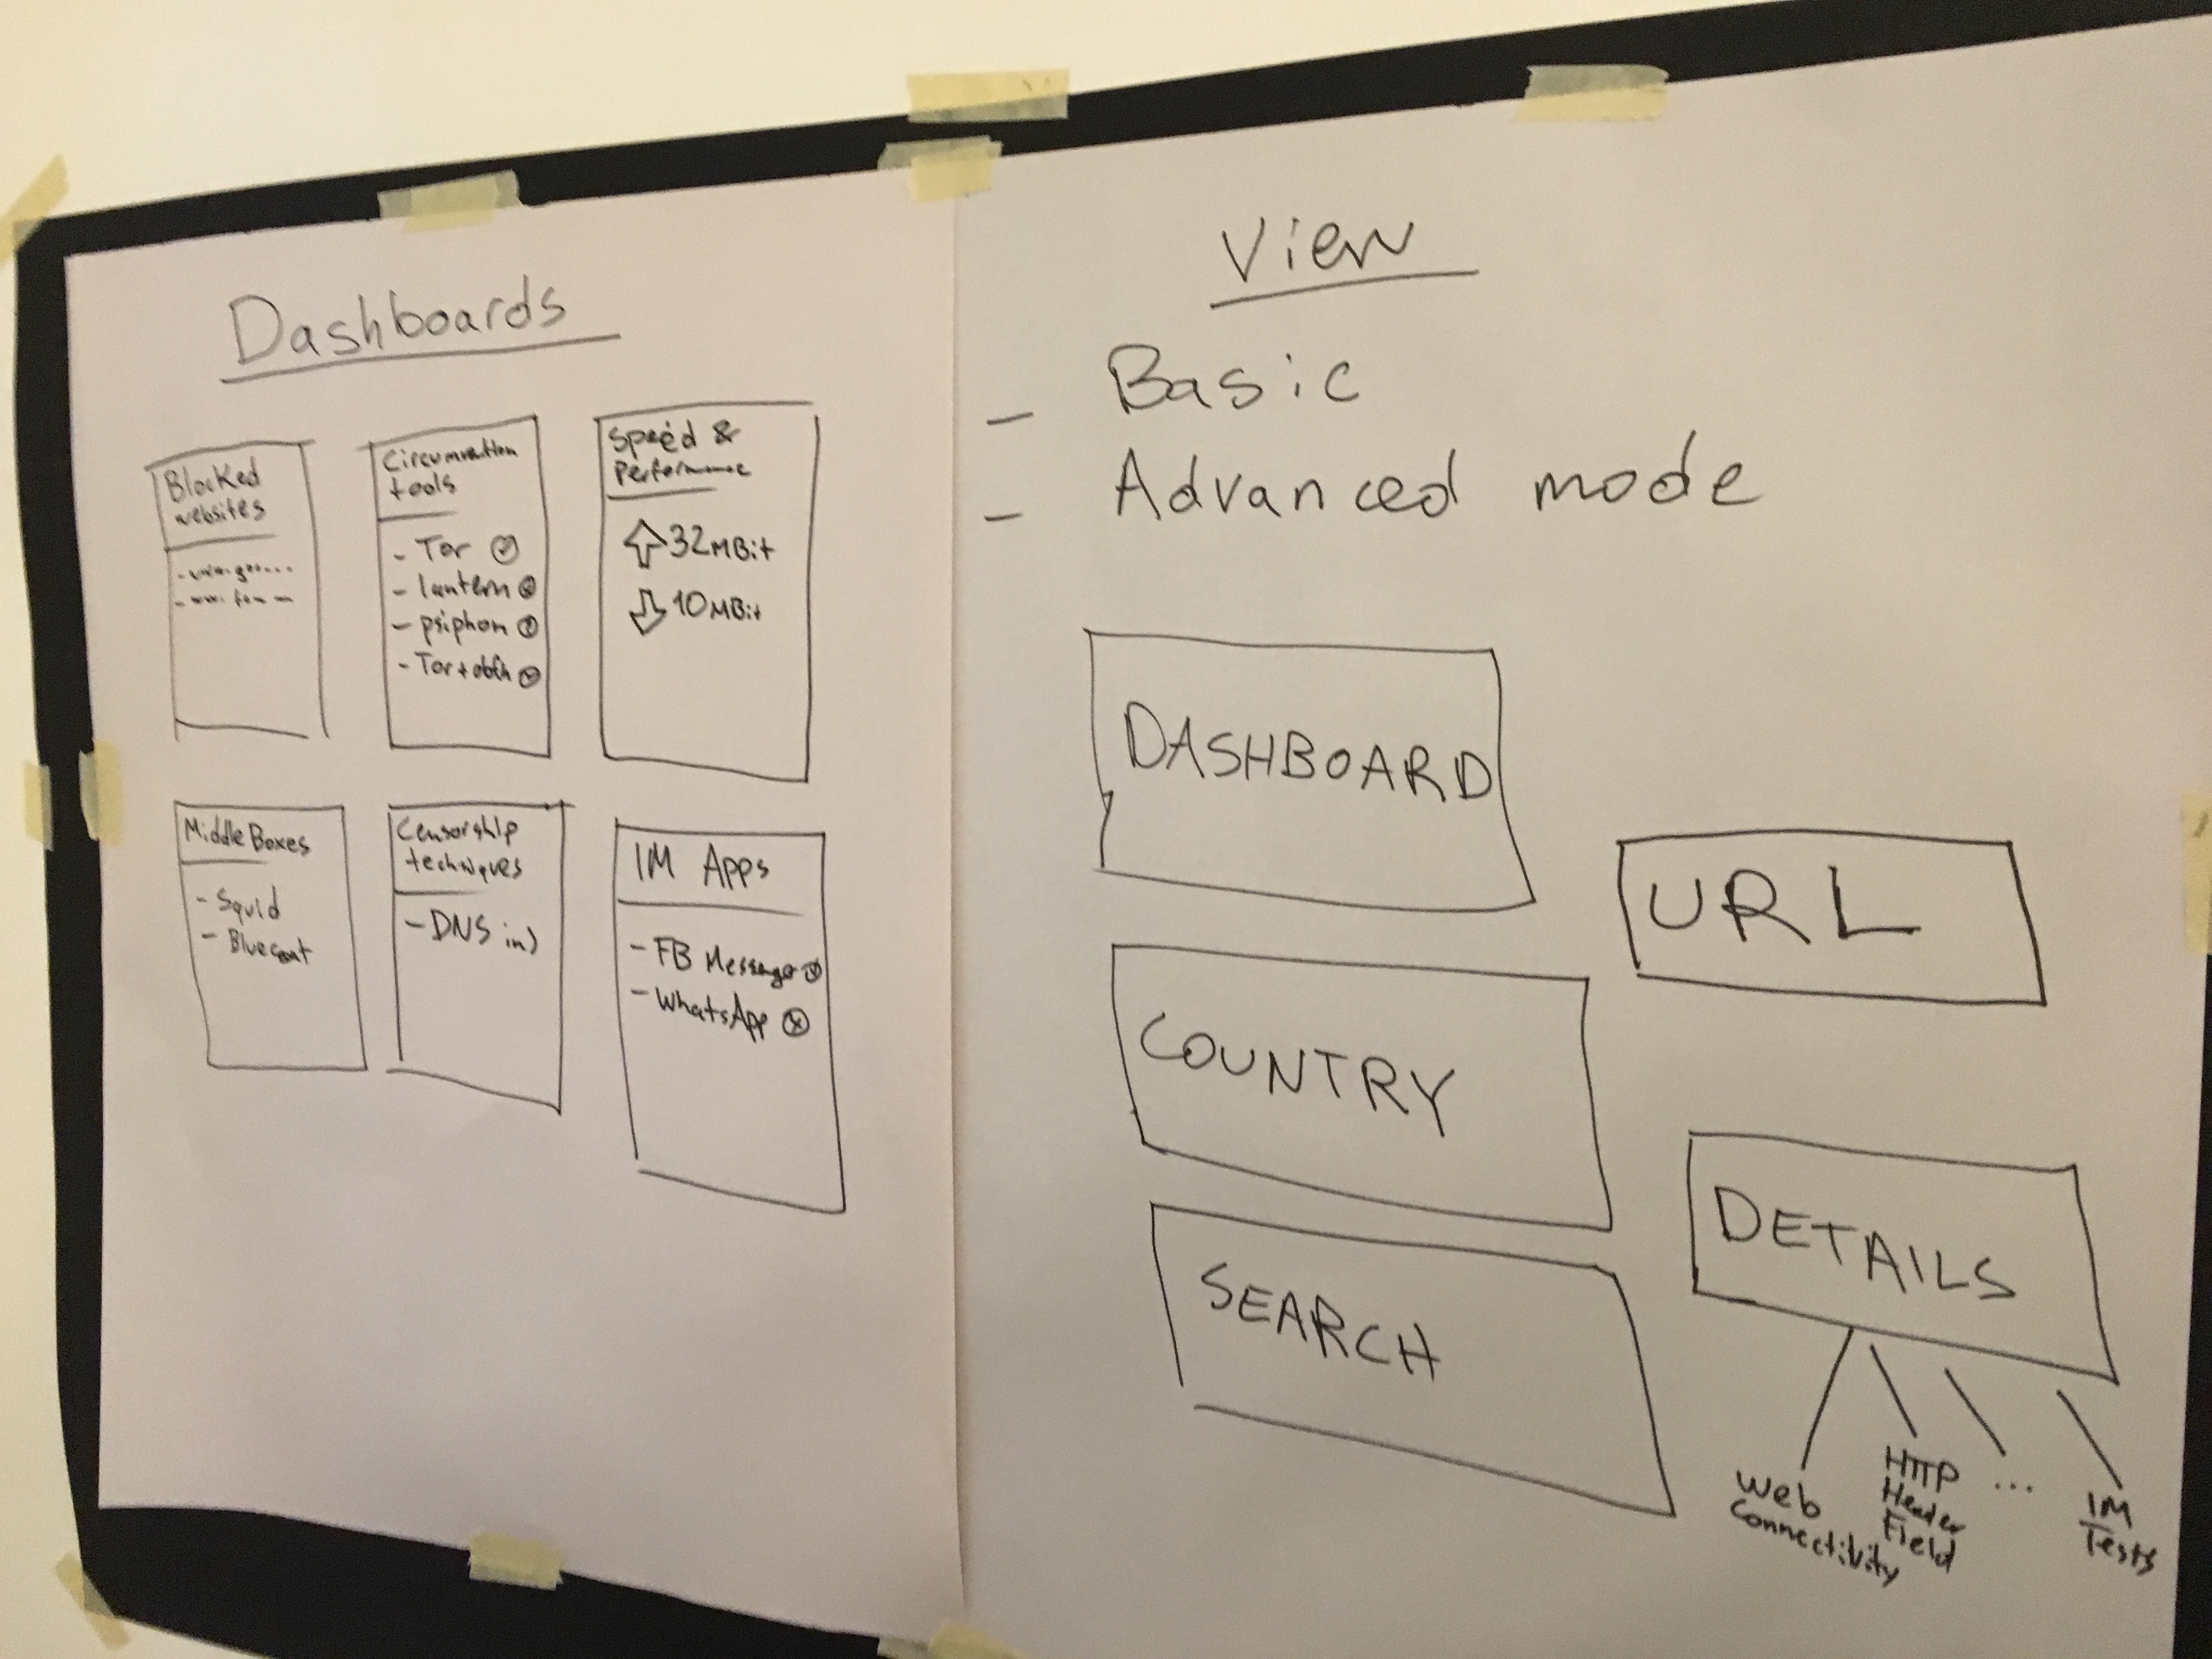 Dashboards
Blocked
websites
Circumvention
tools
- Tor
- lantern
- psiphon
- Tor +
Speed &
Performance
32MBit
10MBit
Middle Boxes
- Squid
- Bluecoat
Censorship
techniques
- DNS inj
IM Apps
- FB Messenger
- WhatsApp
View
- Basic
- Advanced mode
DASHBOARD
URL
COUNTRY
DETAILS
SEARCH
Web
Connectivity
HTTP
Header
Field
...
IM
Tests